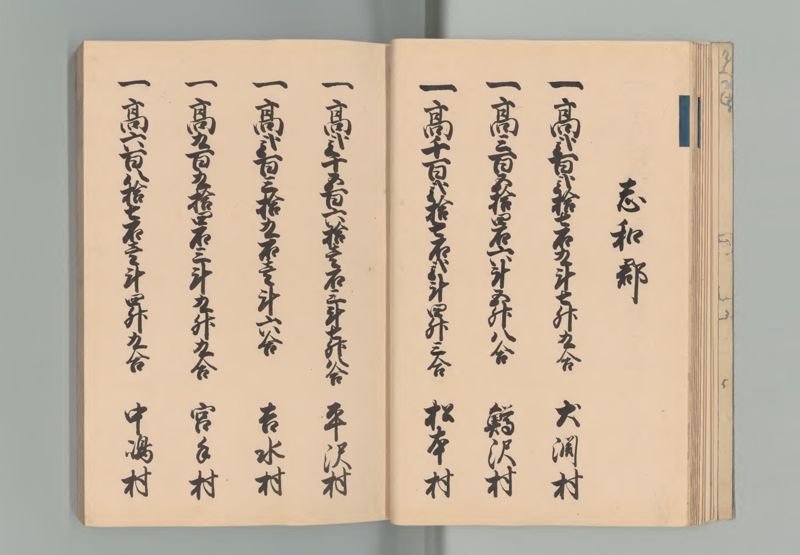 志和郡
一高弐百弐拾七石九斗七升九合 犬渕村
一高三百五拾四石六斗五升八合 鱒沢村
一高千百弐拾七石弐斗四升三合 松本村
一高弐千五百六拾壱石三斗七升八合 平沢村
一高弐百三拾九石壱斗六合 吉水村
一高九百九拾四石三斗九升九合 宮手村
一高六百八拾七石壱斗四升九合 中嶋村